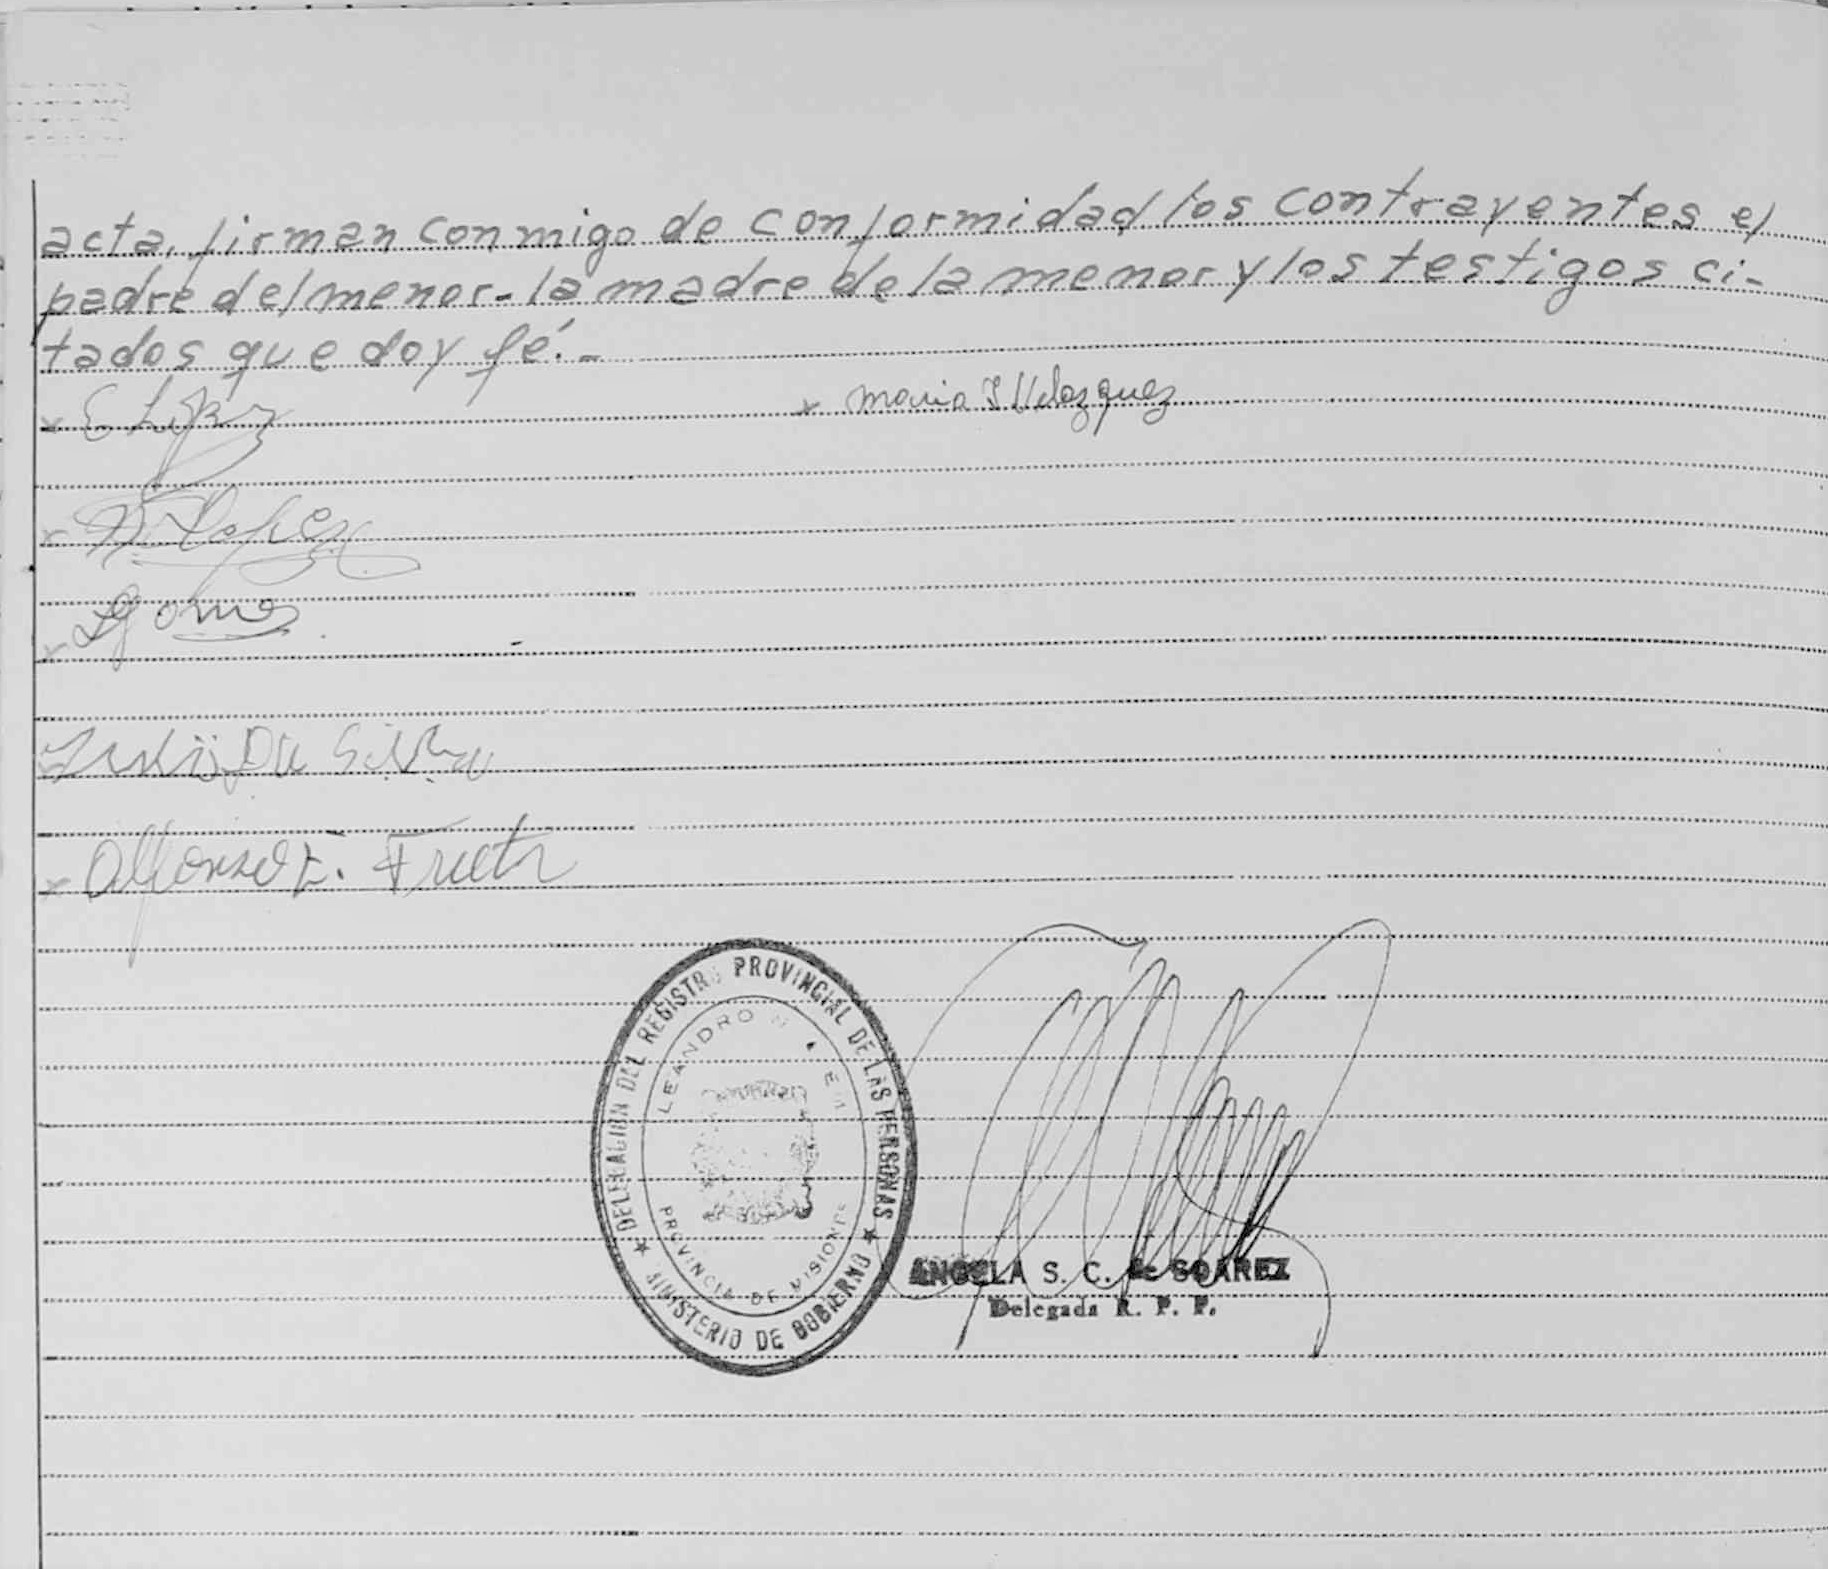 acta, firman conmigo de conformidad los contrayentes el
padre del menor - la madre de la menor y los testigos ci-
tados que doy fé.-
x E López
x Maria I Velazquez
x López
x Gomes
Da Silva
x Alfonso E.
DELEGACION DEL REGISTRO PROVINCIAL DE LAS PERSONAS
LEANDRO N
PROVINCIA DE MISIONES
★ MINISTERIO DE GOBIERNO ★
ANGELA S. C. de SOAREZ
Delegada R. P. P.